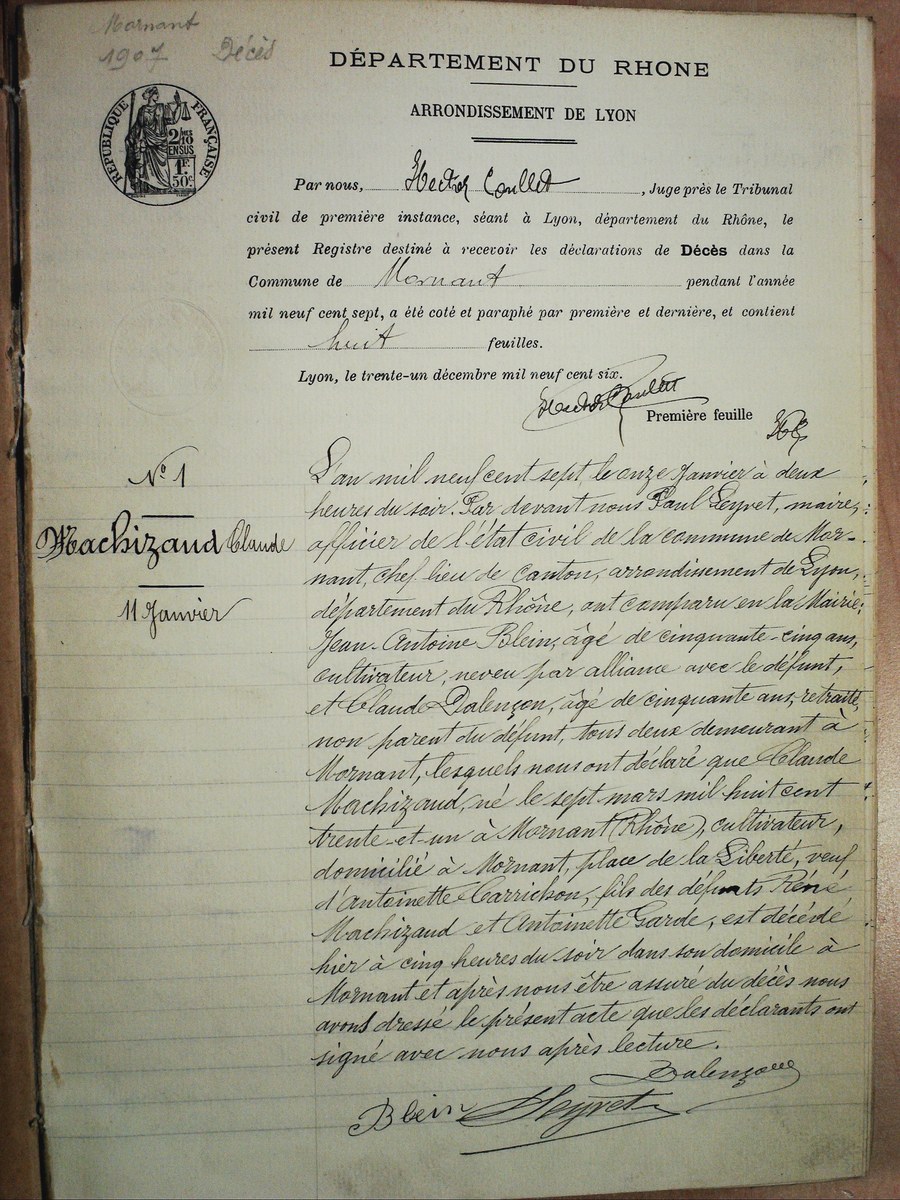 Mornant
1907 Décès
DÉPARTEMENT DU RHONE
ARRONDISSEMENT DE LYON
RÉPUBLIQUE FRANÇAISE
2 10
EN SUS
1F.
50c
Par nous, Hector Coullet, Juge près le Tribunal
civil de première instance, séant à Lyon, département du Rhône, le
présent Registre destiné à recevoir les déclarations de Décès dans la
Commune de Mornant pendant l'année
mil neuf cent sept, a été coté et paraphé par première et dernière, et contient
huit feuilles.
Lyon, le trente-un décembre mil neuf cent six.
Hector Coullet
Première feuille
HC
N° 1
Machizaud Claude
11 Janvier
L'an mil neuf cent sept, le onze Janvier à deux
heures du soir. Par devant nous Paul Leyvet, maire,
officier de l'état civil de la commune de Mor-
nant, chef lieu de canton, arrondissement de Lyon,
département du Rhône, ont comparu en la Mairie:
Jean-Antoine Blein, âgé de cinquante-cinq ans,
cultivateur, neveu par alliance avec le défunt,
et Claude Dalençon, âgé de cinquante ans, retraité,
non parent du défunt, tous deux demeurant à
Mornant, lesquels nous ont déclaré que Claude
Machizaud, né le sept mars mil-huit cent
trente-et-un à Mornant (Rhône), cultivateur,
domicilié à Mornant, place de la Liberté, veuf
d'Antoinette Carrichon, fils des défunts Réné
Machizaud et Antoinette Garde, est décédé
hier à cinq heures du soir dans son domicile à
Mornant et après nous être assuré du décès nous
avons dressé le présent acte que les déclarants ont
signé avec nous après lecture.
Dalençon
Blein Leyvet